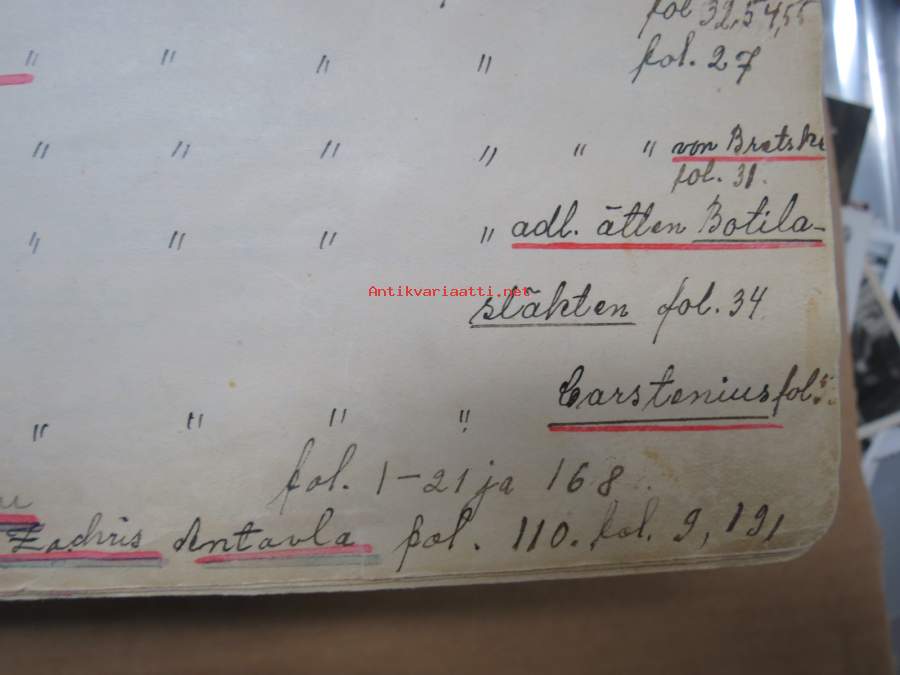 fol 32, 54, 55
" " " " fol. 27
" " " " " " von Bretske
fol. 31.
" " " " adl. ätten Botila-
Antikvariaatti.net
släkten fol. 34
" " " " Carstenius fol. 5.
fol. 1-21 ja 168.
Zachris Antavla fol. 110. fol. 9, 191